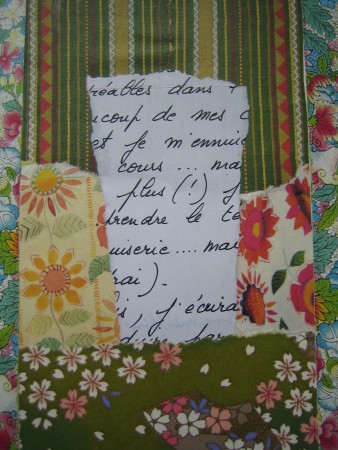 réables dans
coup de mes
et je m'ennui
cours... ma
plus (!) j
prendre le te
uiserie.... mai
rai).
is, j'écira